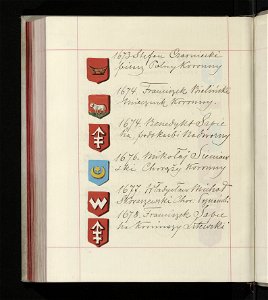 1673 Stefan Czarniecki
pisarz Polny Koronny
1674. Franciszek Bieliński
Miecznik Koronny.
1674. Benedykt Sapie
ha, podskarbi Nadworny
1676. Mikołaj Sieniaw
ski Chorąży Koronny
1677. Władysław Michał
Skoraszewski Chor. Poznański
1678. Franciszek Sapie
ha Koniuszy Litewski